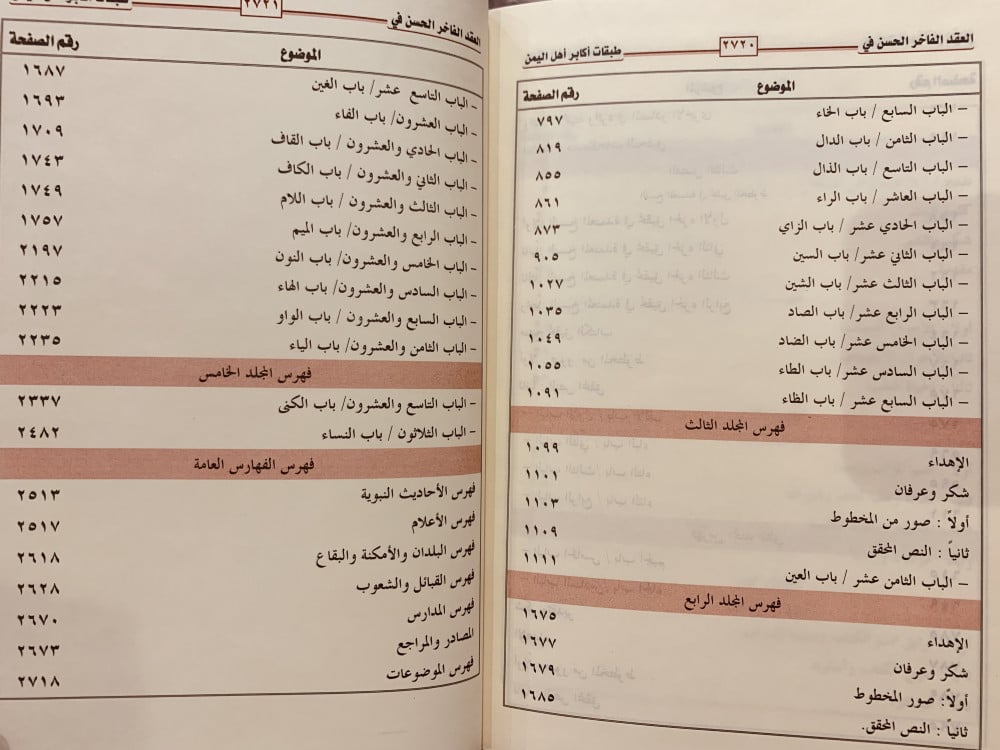 العقد الفاخر الحسن في ٢٧٢٠ طبقات أكابر أهل اليمن
الموضوع رقم الصفحة
– الباب السابع / باب الخاء ٧٩٧
– الباب الثامن / باب الدال ٨١٩
– الباب التاسع / باب الذال ٨٥٥
– الباب العاشر / باب الراء ٨٦١
– الباب الحادي عشر / باب الزاي ٨٧٣
– الباب الثاني عشر/ باب السين ٩٠٥
– الباب الثالث عشر/ باب الشين ١٠٢٧
– الباب الرابع عشر/ باب الصاد ١٠٣٥
– الباب الخامس عشر/ باب الضاد ١٠٤٩
– الباب السادس عشر/ باب الطاء ١٠٥٥
– الباب السابع عشر / باب الظاء ١٠٩١
فهرس المجلد الثالث
الإهداء ١٠٩٩
شكر وعرفان ١١٠١
أولاً : صور من المخطوط ١١٠٣
ثانياً : النص المحقق ١١٠٩
– الباب الثامن عشر / باب العين ١١١١
فهرس المجلد الرابع
الإهداء ١٦٧٥
شكر وعرفان ١٦٧٧
أولاً: صور المخطوط ١٦٧٩
ثانياً : النص المحقق. ١٦٨٥
العقد الفاخر الحسن في ٢٧٢١
الموضوع رقم الصفحة
– الباب التاسع عشر/ باب الغين ١٦٨٧
– الباب العشرون/ باب الفاء ١٦٩٣
– الباب الحادي والعشرون/ باب القاف ١٧٠٩
– الباب الثاني والعشرون / باب الكاف ١٧٤٣
– الباب الثالث والعشرون / باب اللام ١٧٤٩
– الباب الرابع والعشرون/ باب الميم ١٧٥٧
– الباب الخامس والعشرون/ باب النون ٢١٩٧
– الباب السادس والعشرون/ باب الهاء ٢٢١٥
– الباب السابع والعشرون / باب الواو ٢٢٢٣
– الباب الثامن والعشرون/ باب الياء ٢٢٣٥
فهرس المجلد الخامس
– الباب التاسع والعشرون/ باب الكنى ٢٣٣٧
– الباب الثلاثون / باب النساء ٢٤٨٢
فهرس الفهارس العامة
فهرس الأحاديث النبوية ٢٥١٣
فهرس الأعلام ٢٥١٧
فهرس البلدان والأمكنة والبقاع ٢٦١٨
فهرس القبائل والشعوب ٢٦٢٨
فهرس المدارس ٢٦٧٠
المصادر والمراجع ٢٦٧٣
فهرس الموضوعات ٢٧١٨